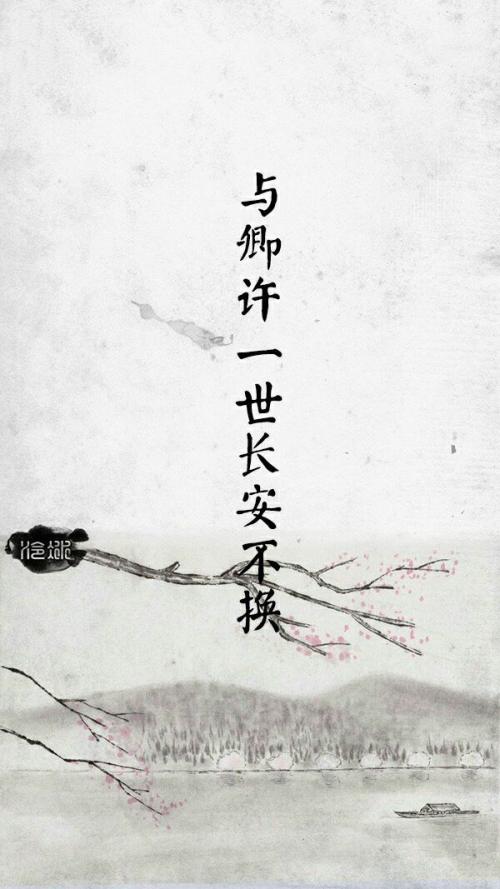 与卿许一世长安不换